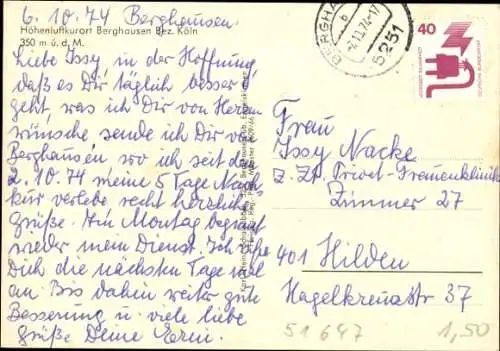 6.10.74 Berghausen.
Höhenluftkurort Berghausen Bez. Köln
350 m ü. d. M.
Liebe Issy, in der Hoffnung
daß es Dir täglich besser
geht, was ich Dir von Herzen
wünsche sende ich Dir von
Berghausen, wo ich seit dem
2.10.74 meine 5 Tage Nach
kur verlebe recht herzliche
Grüße. Am Montag beginnt
wieder mein Dienst. Ich rufe
Dich die nächsten Tage mal
an. Bis dahin weiter gute
Besserung u viele liebe
Grüße Deine Erni.
5251
40
DEUTSCHE BUNDESPOST
Frau
Issy Nacke
z. Zt. Privat-Frauenklinik
Zimmer 27
401 Hilden
Hagelkreuzstr 37
51647
1,50